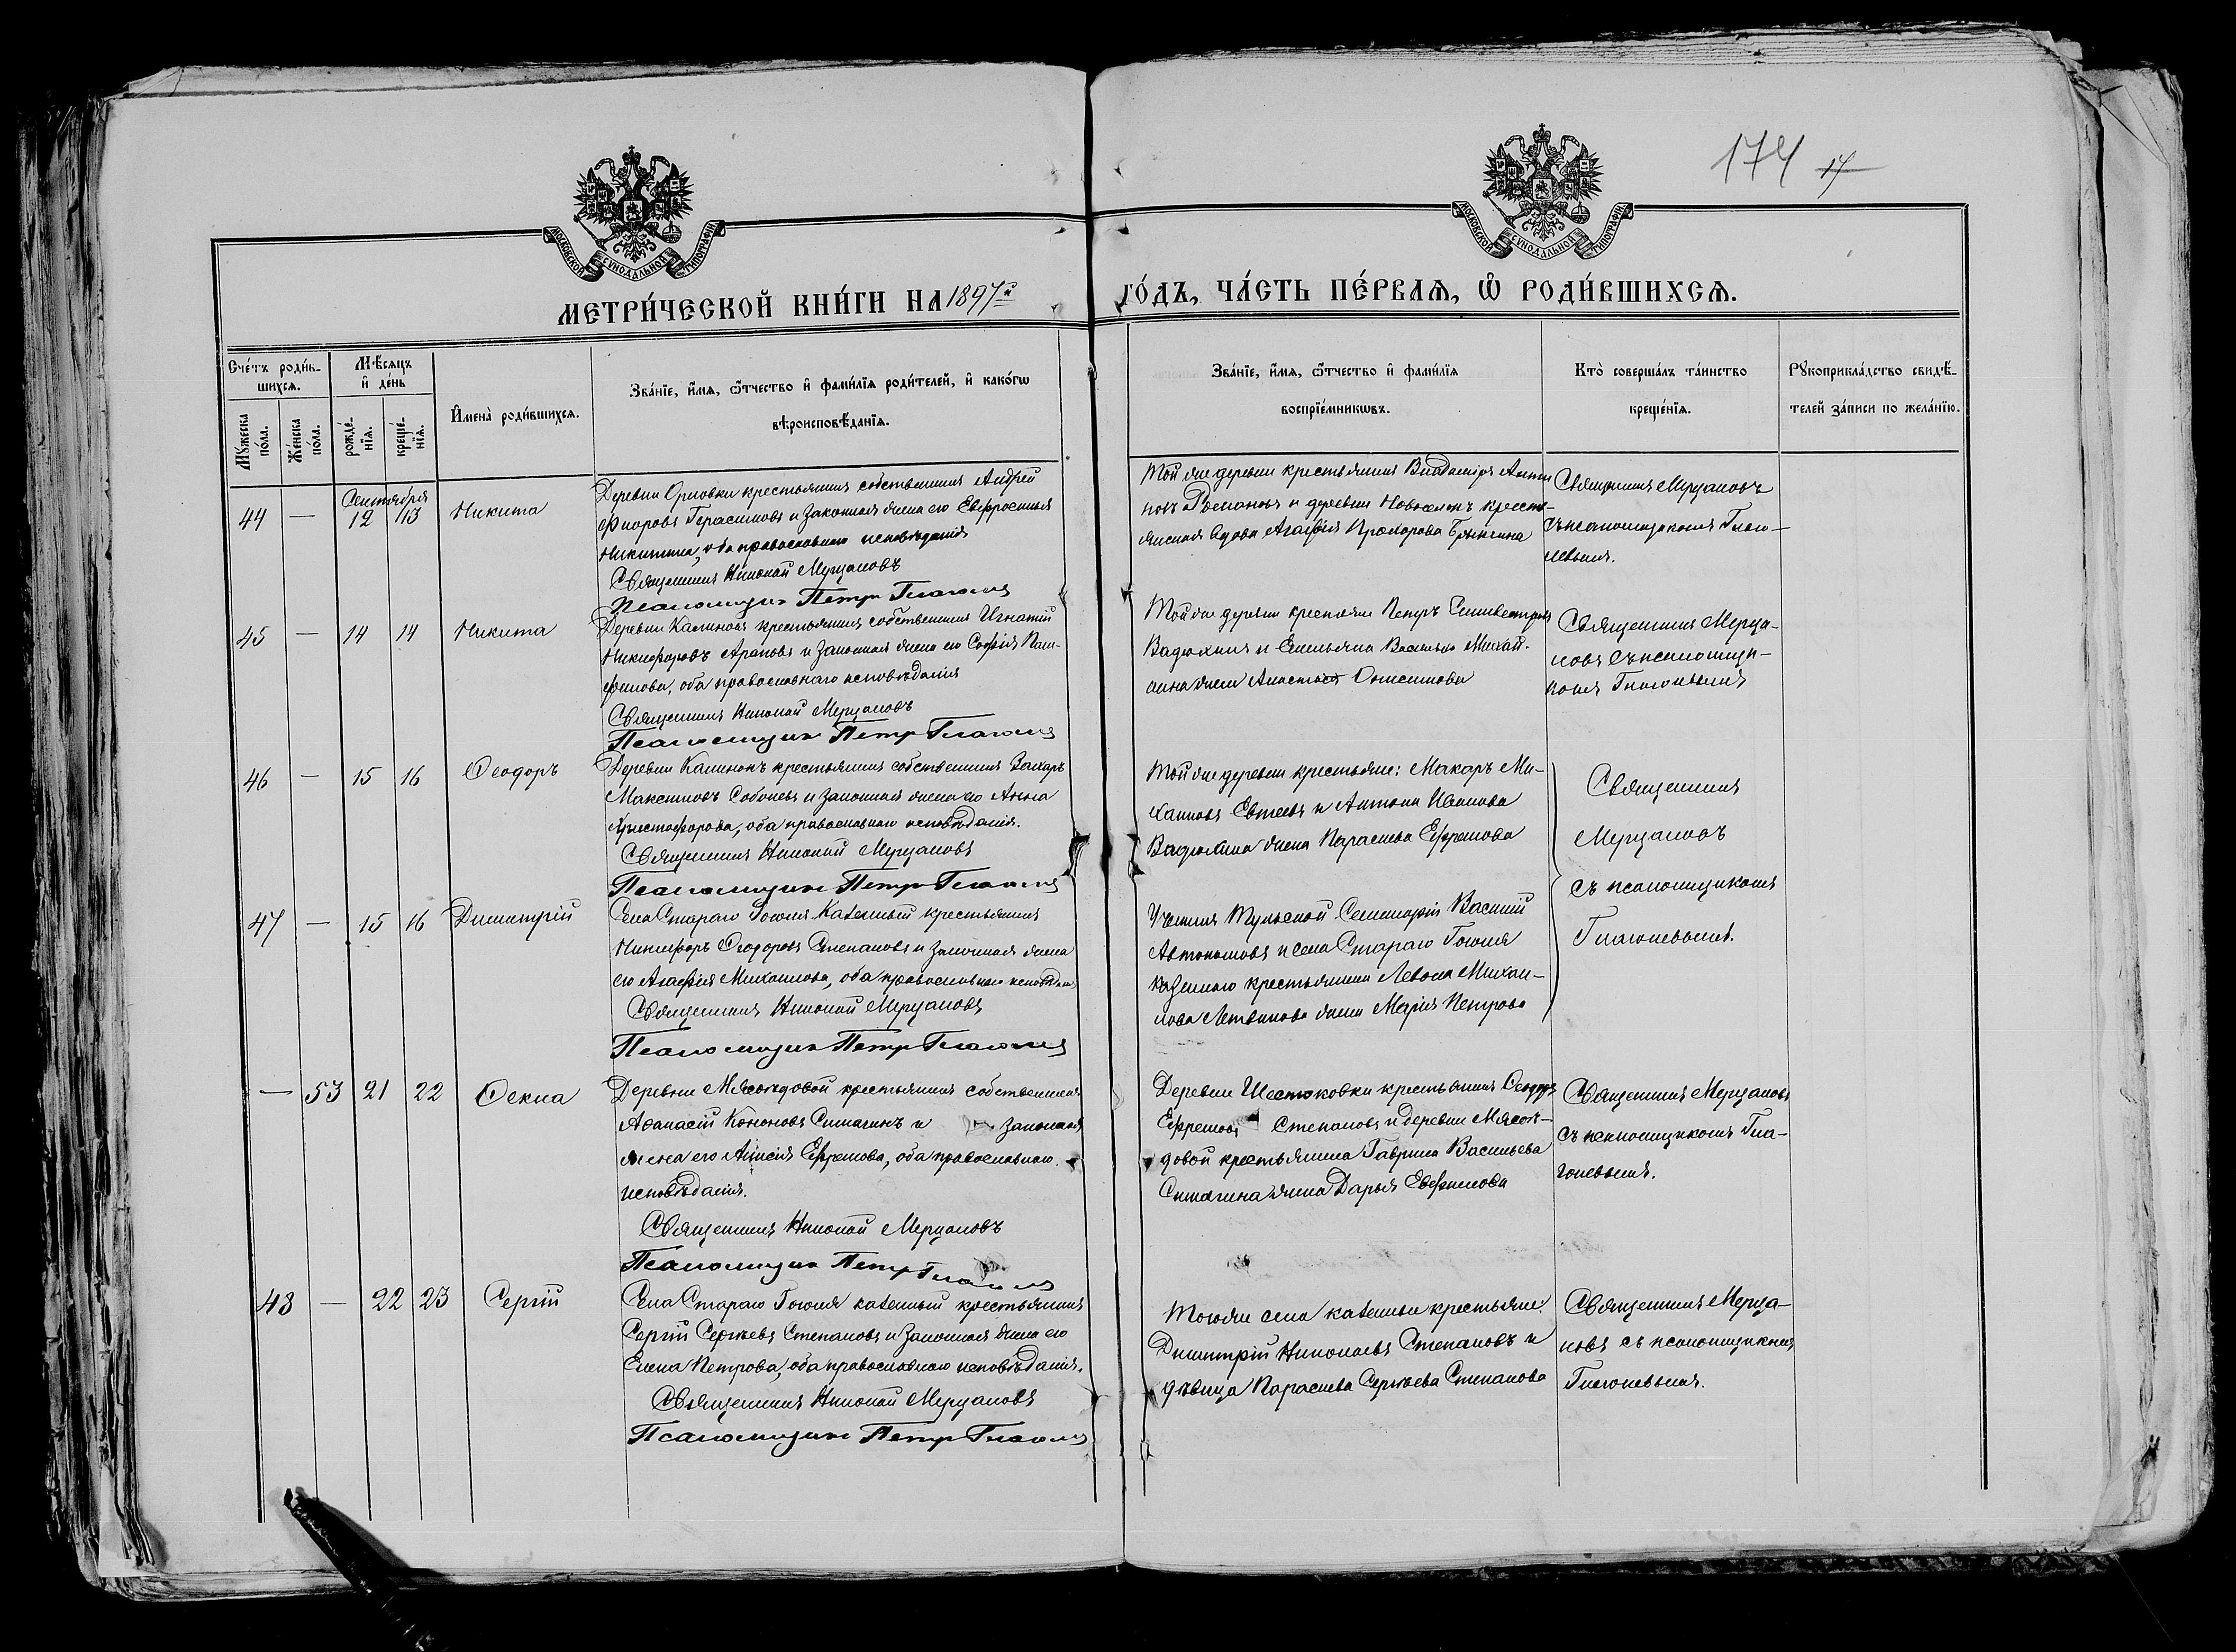 174 17
МОСКОВСКОЙ СѴНОДАЛЬНОЙ ТИПОГРАФІИ
МОСКОВСКОЙ СѴНОДАЛЬНОЙ ТИПОГРАФІИ
МЕТРИ́ЧЕСКОЙ КНИ́ГИ НА 1897й ГО́ДЪ, ЧА́СТЬ ПЕ́РВАѦ, Ѡ҆ РОДИ́ВШИХСѦ.
Сче́тъ роди́в-
шихсѧ.
Мꙋ́жеска по́ла.
Же́нска по́ла.
Мѣ́сѧцъ и҆ де́нь
рожде́-
нїѧ.
креще́-
нїѧ.
И҆мена̀ роди́вшихсѧ.
Зва́нїе, и҆́мѧ, ѻ҆́тчество и҆ фами́лїѧ роди́телей, и҆ како́гѡ
вѣроисповѣ́данїѧ.
Зва́нїе, и҆́мѧ, ѻ҆́тчество и҆ фами́лїѧ
воспрїе́мникѡвъ.
Кто̀ соверша́лъ та́инство
креще́нїѧ.
Рꙋкоприкла́дство свидѣ́-
телей за́писи по жела́нїю.
Сентября
44 — 12 13 Никита
Деревни Орловки крестьянинъ собственникъ Андрей
Герасимовъ и законная жена его Евфросинія
Никитина, оба православнаго исповѣданія
Священникъ Николай Мерцаловъ
Псаломщикъ Петръ Глаголевъ
Той же деревни крестьянинъ Владиміръ Анти
повъ Романовъ и деревни Новоселокъ кресть-
янская вдова Агафія Прохорова
Священникъ Мерцаловъ
съ псаломщикомъ Глаго-
левымъ.
45 — 14 14 Никита
Деревни Калиновя крестьянинъ собственникъ Игнатій
Никифоровъ Араповъ и законная жена его Софія Пан-
филова, оба православнаго исповѣданія
Священникъ Николай Мерцаловъ
Псаломщикъ Петръ Глаголевъ
Той же деревни крестьяне Петръ Силивестровъ
Вадюхинъ и Емельяна Михай-
лина жена Анастасія Онисимова
Священникъ Мерца-
ловъ съ псаломщи-
комъ Глаголевымъ
46 — 15 16 Ѳеодоръ
Деревни Калинокъ крестьянинъ собственникъ Захаръ
Максимовъ Соболевъ и законная жена его Анна
Христофорова, оба православнаго исповѣданія.
Священникъ Николай Мерцаловъ
Псаломщикъ Петръ Глаголевъ
Той же деревни крестьяне: Макаръ Ми-
хаиловъ Евтеевъ и Антона Иванова
Вадюхина жена Параскева Ефремова
Священникъ
Мерцаловъ
съ псаломщикомъ
Глаголевымъ.
47 — 15 16 Димитрій
Села Стараго Гоголя казенный крестьянинъ
Никифоръ Ѳеодоровъ Степановъ и законная жена
его Агафія Михаилова, оба православнаго исповѣдан.
Священникъ Николай Мерцаловъ
Псаломщикъ Петръ Глаголевъ
Ученикъ Тульской Семинаріи Василій
Автономовъ и села Стараго Гоголя
казеннаго крестьянина Левона Михаи-
лова Литвинова жена Марія Петрова
— 53 21 22 Ѳекла
Деревни Мясоѣдовой крестьянинъ собственникъ
Аѳанасій Кононовъ Синягинъ и законная
жена его Анисія Ефремова, оба православнаго
исповѣданія.
Священникъ Николай Мерцаловъ
Псаломщикъ Петръ Глаголевъ
Деревни Шестоковки крестьянинъ Ѳеодоръ
Ефремовъ Степановъ и деревни Мясоѣ-
довой крестьянина Гавріила Васильева
Синягина жена Дарья Евфимова
Священникъ Мерцаловъ
съ псаломщикомъ Гла-
голевымъ.
48 — 22 23 Сергій
Села Стараго Гоголя казенный крестьянинъ
Сергій Сергѣевъ Степановъ и законная жена его
Елена Петрова, оба православнаго исповѣданія.
Священникъ Николай Мерцаловъ
Псаломщикъ Петръ Глаголевъ
Тогоже села казенные крестьяне:
Димитрій Николаевъ Степановъ и
дѣвица Параскева Сергѣева Степанова
Священникъ Мерца-
ловъ съ псаломщикомъ
Глаголевымъ.